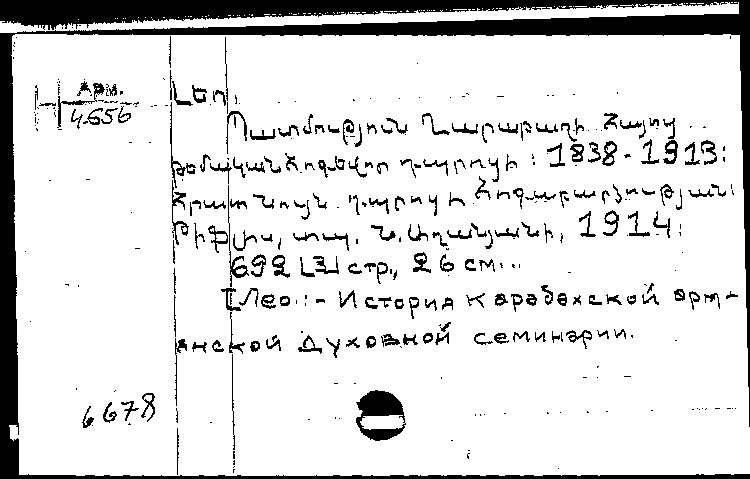 Арм.
4.656
Լեո.
Պատմություն Ղարաբաղի Հայոց
թեմական հոգևոր դպրոցի: 1838-1913:
Հրատ նույն դպրոցի հոգաբարձության:
Թիֆլիս, տպ. Ն. Աղանյանի, 1914:
692 [3] стр., 26 см...
[Лео.:- История Карабахской армянской
янской Духовной семинарии.
6678